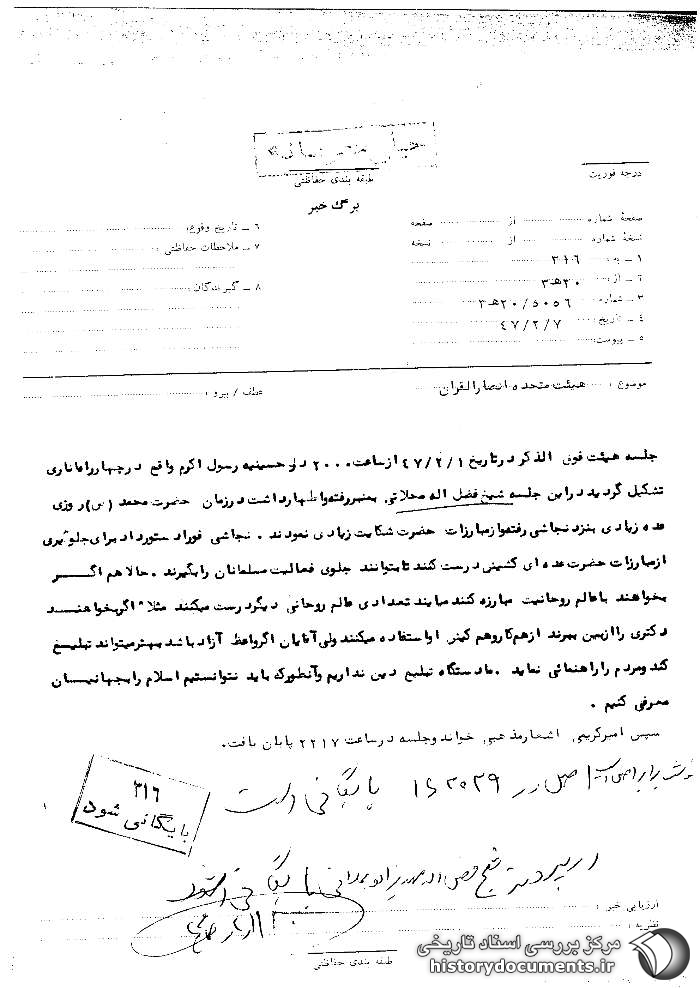 طبقه بندی حفاظتی
درجه فوریت
برگ خبر
صفحهٔ شماره از صفحه
نسخهٔ شماره از نسخه
۱ – به ۳۱۶
۲ – از ۲۰هـ۳
۳ – شماره ۲۰/۵۰۵۶هـ۳
۴ – تاریخ ۴۷/۲/۷
۵ – پیوست
۶ – تاریخ وقوع:
۷ – ملاحظات حفاظتی :
۸ – گیرندگان:
موضوع : هیئت متحده انصارالقران
عطف / پیرو :
جلسه هیئت فوق الذکر در تاریخ ۴۷/۲/۱ از ساعت ۲۰۰۰ در حسینیه رسول اکرم واقع در چهارراه اناری
تشکیل گردید در این جلسه شیخ فضل اله محلاتی بمنبر رفته و اظهار داشت در زمان حضرت محمد (ص) روزی
عده زیادی بنزد نجاشی رفته و از مبارزات حضرت شکایت زیادی نمودند . نجاشی فورا دستور داد برای جلوگیری
از مبارزات حضرت عده ای کشیش درست کنند تا بتوانند جلوی فعالیت مسلمانان را بگیرند . حالا هم اگر
بخواهند با عالم روحانیت مبارزه کنند میایند تعدادی عالم روحانی دیگر درست میکنند مثلا" اگر بخواهند
دکتری را از بین ببرند از همکار و هم کیش او استفاده میکنند ولی آقایان اگر واعظ آزاد باشد بهتر میتواند تبلیغ
کند و مردم را راهنمائی نماید . ما دستگاه تبلیغ دین نداریم و آنطور که باید نتوانستیم اسلام را بجهانیان
معرفی کنیم .
سپس امیرکریمی اشعار مذهبی خواند و جلسه در ساعت ۲۲۱۷ پایان یافت.
اصل در ۱۵۲۰۲۹ بایگانی است
۳۱۶
بایگانی شود
در پرونده شیخ بایگانی شود
ارزیابی خبر :
نظریه :
طبقه بندی حفاظتی
مرکز بررسی اسناد تاریخی
historydocuments.ir